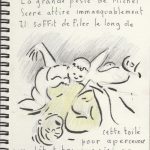 La grande peste de Michel
Serre attire immanquablement
Il suffit de filer le long de
cette toile
pour apercevoir